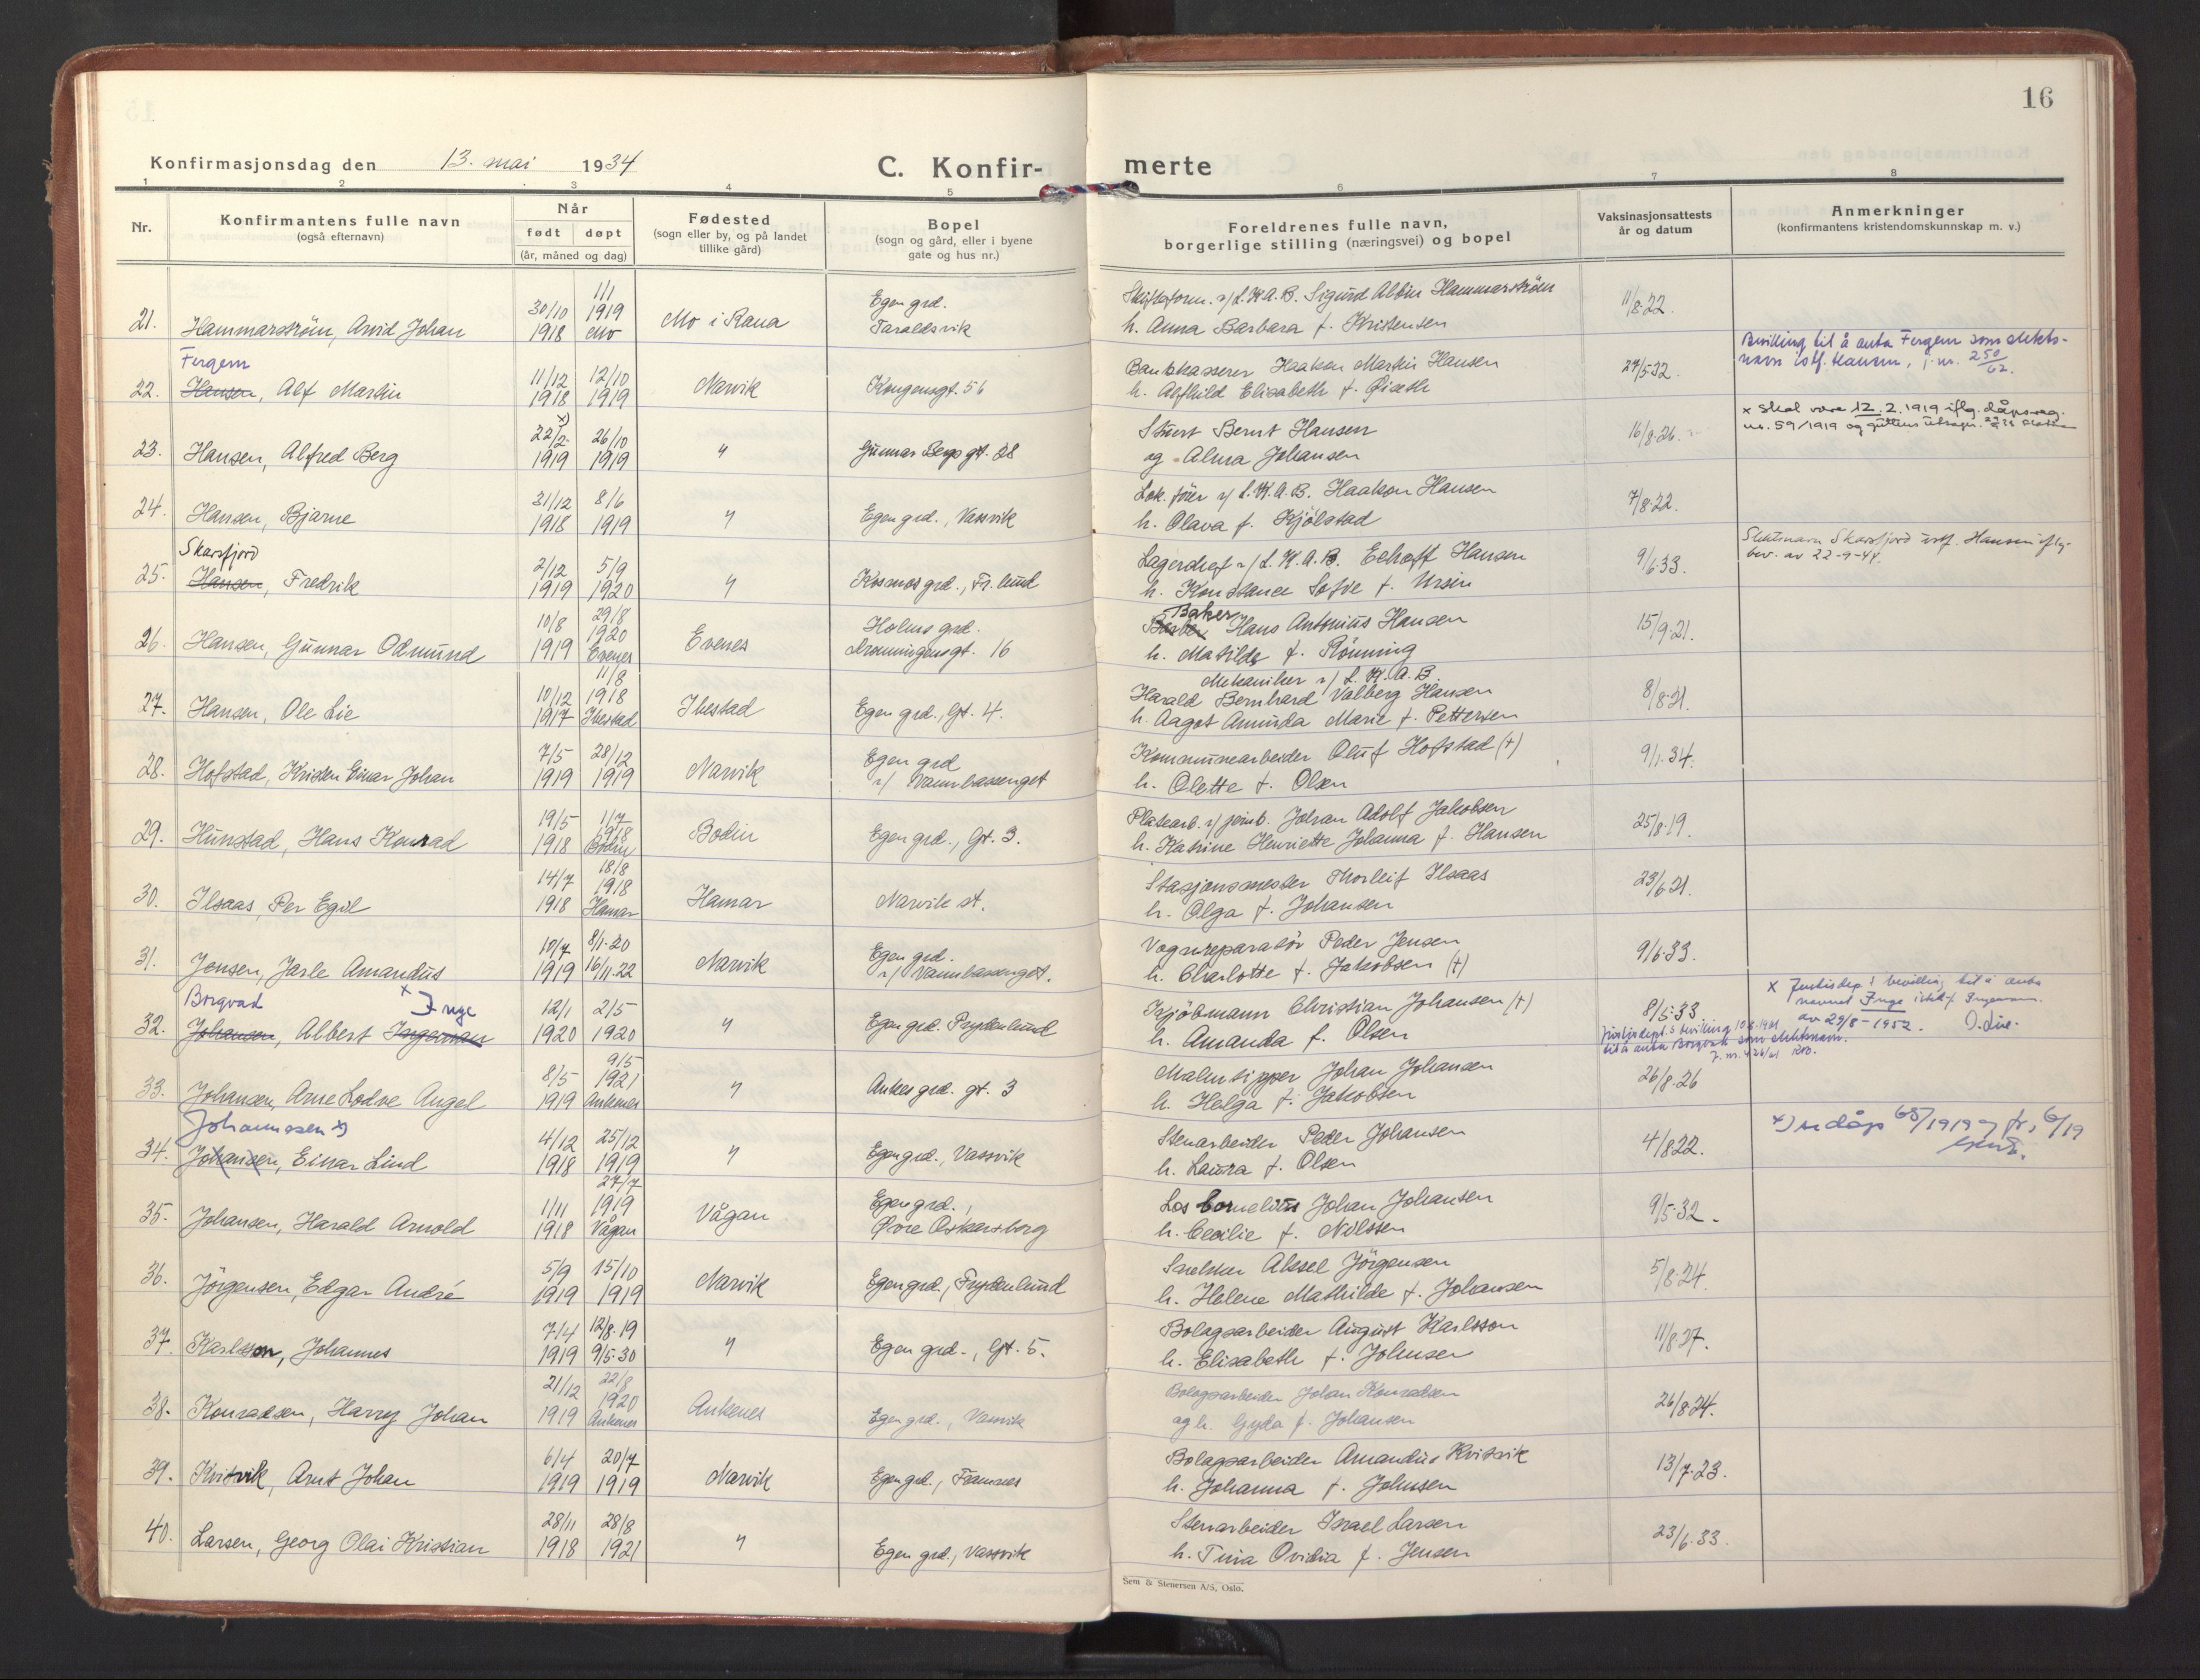 16
Konfirmasjonsdag den 13. mai 1934
C. Konfir- merte
1 2 3 4 5 6 7 8
Nr.
Konfirmantens fulle navn
(også efternavn)
Når
født døpt
(år, måned og dag)
Fødested
(sogn eller by, og på landet
tillike gård)
Bopel
(sogn og gård, eller i byene
gate og hus nr.)
Foreldrenes fulle navn,
borgerlige stilling (næringsvei) og bopel
Vaksinasjonsattests
år og datum
Anmerkninger
(konfirmantens kristendomskunnskap m. v.)
21. Hammarström, Arvid Johan 30/10 1918 1/1 1919 Mo Mo i Rana Egen grd. Taraldsvik
Skifteform. v/ L.K.A.B. Sigurd Albin Hammarström
h. Anna Barbara f. Kristensen 11/8.22.
Fergem
22. Hansen, Alf Martin 11/12 1918 12/10 1919 Narvik Kongensgt. 56
Bankkasserer Haakon Martin Hansen
h. Alfhild Elisabeth f. 24/5.32.
Bevilling til å anta Fergem som slekts-
navn istf. Hansen, j. nr. 250/62.
23. Hansen, Alfred Berg 22/2 x) 1919 26/10 1919 " Gunnar Bergs gt. 28
Stuert Bernt Hansen
og Alma Johansen 16/8.26.
x skal være 12.2.1919 iflg. dåpsreg.
nr. 59/1919 og guttens utsagn.
24. Hansen, Bjarne 31/12 1918 8/6 1919 " Egen grd., Vassvik
Lok. fører v/ L.K.A.B. Haakon Hansen
h. Olava f. Kjölstad 7/8.22.
Skarsfjord
25. Hansen, Fredrik 2/12 1919 5/9 1920 " Kosmos grd., Fr. lund
Lagerchef v/ L.K.A.B. Eehoff Hansen
h. Konstance Sofve f. Ursin 9/6.33.
Slektsnavn Skarsfjord istf. Hansen iflg.
bev. av 22-9-44.
26. Hansen, Gunnar Odmund 10/8 1919 29/8 1920 Evenes Evenes Holms grd. Dronningensgt. 16
Baker Hans Antonius Hansen
h. Matilde f. Rönning 15/9.21.
27. Hansen, Ole Lie 10/12 1917 11/8 1918 Ibestad Ibestad Egen grd., Gt. 4.
Mekaniker v/ L.K.A.B.
Harald Bernhard Valberg Hansen
h. Aagot Aminda Marie f. Pettersen 8/8.21.
28. Hofstad, Kristen Einar Johan 7/5 1919 28/12 1919 Narvik Egen grd v/ Vannbassenget
Kommunearbeider Oluf Hofstad (+)
h. Olette f. Olsen 9/1.34.
29. Hunstad, Hans Konrad 19/5 1918 1/7 1918 Bodin Bodin Egen grd., Gt. 3.
Platearb. v/ jernb. Johan Adolf Jakobsen
h. Katrine Henriette Johanna f. Hansen 25/8.19.
30. Ilsaas, Per Egil 14/7 1918 18/8 1918 Hamar Hamar Narvik st.
Stasjonsmester Thorleif Ilsaas
h. Olga f. Johansen 23/6.21.
31. Jensen, Jarle Amandus 10/7 1919 8/1.20 16/11.22 Narvik Egen grd. v/ Vannbassenget.
Vognreparatör Peder Jensen
h. Charlotte f. Jakobsen (+) 9/6.33.
Borgvad x Inge
32. Johansen, Albert Ingeman 12/1 1920 2/5 1920 " Egen grd. Frydenlund
Kjöbmann Christian Johansen (+)
h. Amanda f. Olsen 8/5.33
x Justisdep.s bevilling til å anta
navnet Inge istedf. Ingeman.
av 29/8-1952. O. Lie.
Justisdept.s bevilling 10.8.1961
til å anta Borgvad som slektsnavn.
33. Johansen, Arne Lodve Angel 8/5 1919 9/5 1921 Ankenes " Ankes grd. gt. 3
Malmtipper Johan Johansen
h. Helga f. Jakobsen 26/8.26
Johannesen x)
34. Johansen, Einar Lind 4/12 1918 25/12 1919 " Egen grd., Vassvik
Stenarbeider Peder Johansen
h. Laura f. Olsen 4/8.22.
35. Johansen, Harald Arnold 1/11 1918 27/7 1919 Vågan Vågan Egen grd., Øvre Oskarsborg
Los Cornelius Johan Johansen
h. Cecilie f. Nilssen 9/5.32.
36. Jörgensen, Edgar André 5/9 1919 15/10 1919 Narvik Egen grd., Frydenlund
Snekker Aksel Jörgensen
h. Helene Mathilde f. Johansen 5/8.24.
37. Karlsson, Johannes 7/4 1919 12/8.19 9/5.30 " Egen grd., Gt. 5.
Bolagsarbeider August Karlsson
h. Elisabeth f. Johnsen 11/8.27.
38. Konradsen, Harry Johan 21/12 1919 22/8 1920 Ankenes Ankenes Egen grd., Vassvik
Bolagsarbeider Johan Konradsen
og h. Gyda f. Johansen 26/8.24.
39. Kvitvik, Arnt Johan 6/4 1919 20/7 1919 Narvik Egen grd., Framnes
Bolagsarbeider Amandus Kvitvik
h. Johanna f. Johnsen 13/7.23.
40. Larsen, Georg Olai Kristian 28/11 1918 28/8 1921 " Egen grd., Vassvik
Stenarbeider Israel Larsen
h. Tina Ovidia f. Jensen 23/6.33.
Sem & Stenersen A/S, Oslo.